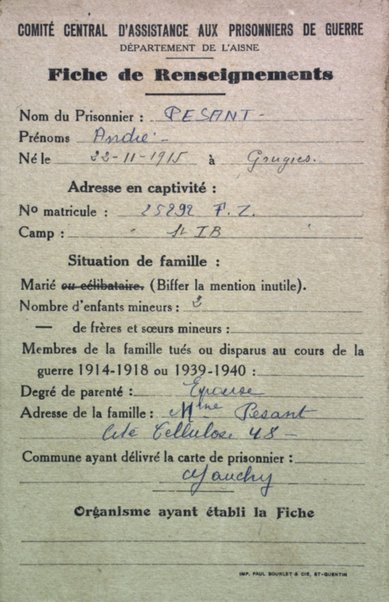 COMITÉ CENTRAL D'ASSISTANCE AUX PRISONNIERS DE GUERRE
DÉPARTEMENT DE L'AISNE
Fiche de Renseignements
Nom du Prisonnier : PESANT
Prénoms André
Né le 22-11-1915 à Grugies
Adresse en captivité :
No matricule : 25292 F. Z.
Camp : St I B
Situation de famille :
Marié ou célibataire. (Biffer la mention inutile).
Nombre d'enfants mineurs : 2
— de frères et sœurs mineurs :
Membres de la famille tués ou disparus au cours de la
guerre 1914-1918 ou 1939-1940 :
Degré de parenté : Epouse
Adresse de la famille : Mme Pesant
Cité Cellulose 48
Commune ayant délivré la carte de prisonnier :
Gauchy
Organisme ayant établi la Fiche
IMP. PAUL BOURLET & CIE, ST-QUENTIN